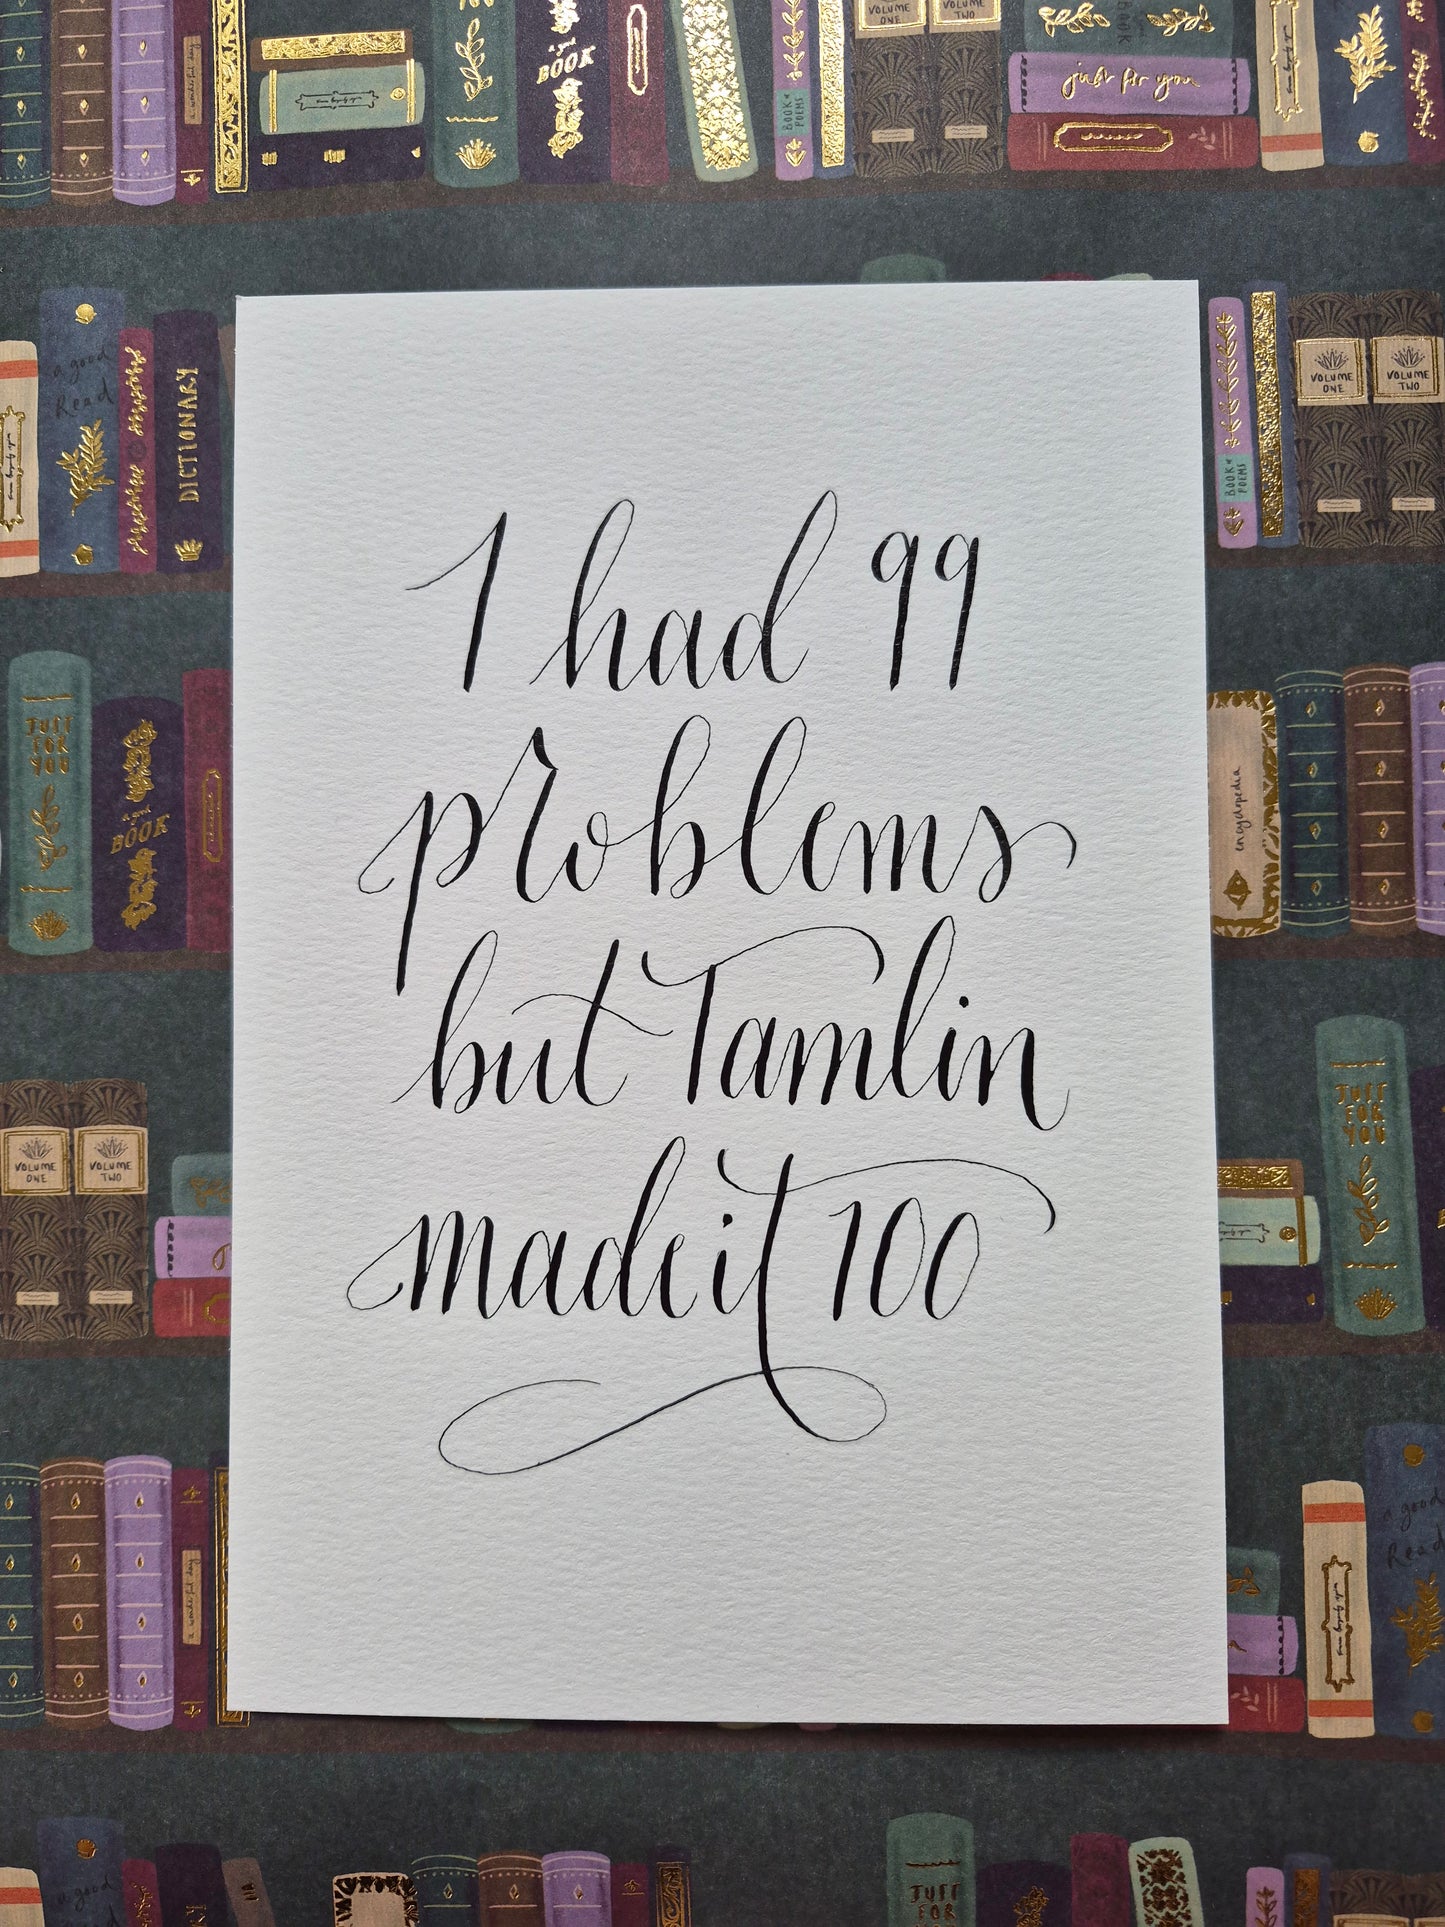 VOLUME ONE
VOLUME TWO
a good BOOK
BOOK OF POEMS
Book
just for you
a wonderful day
a good Read
DICTIONARY
VOLUME ONE
VOLUME TWO
BOOK OF POEMS
I had 99
problems
but Tamlin
made it 100
JUST FOR YOU
a good BOOK
encyclopedia
VOLUME ONE
VOLUME TWO
JUST FOR YOU
a wonderful day
a good Read
a good
JUST FOR